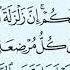 كُمْ إِنَّ زَلْزَلَةَ
كُلُّ مُرْضِعَ